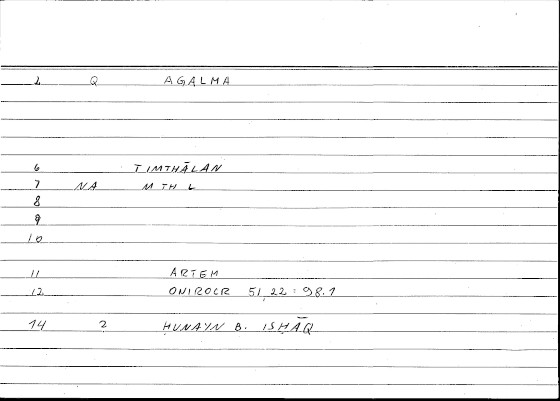 L Q AGALMA
6 TIMTHĀLAN
7 NA M TH L
8
9
10
11 ARTEM
12 ONIROCR 51,22 : 98.1
14 2 ḤUNAYN B. ISḤĀQ